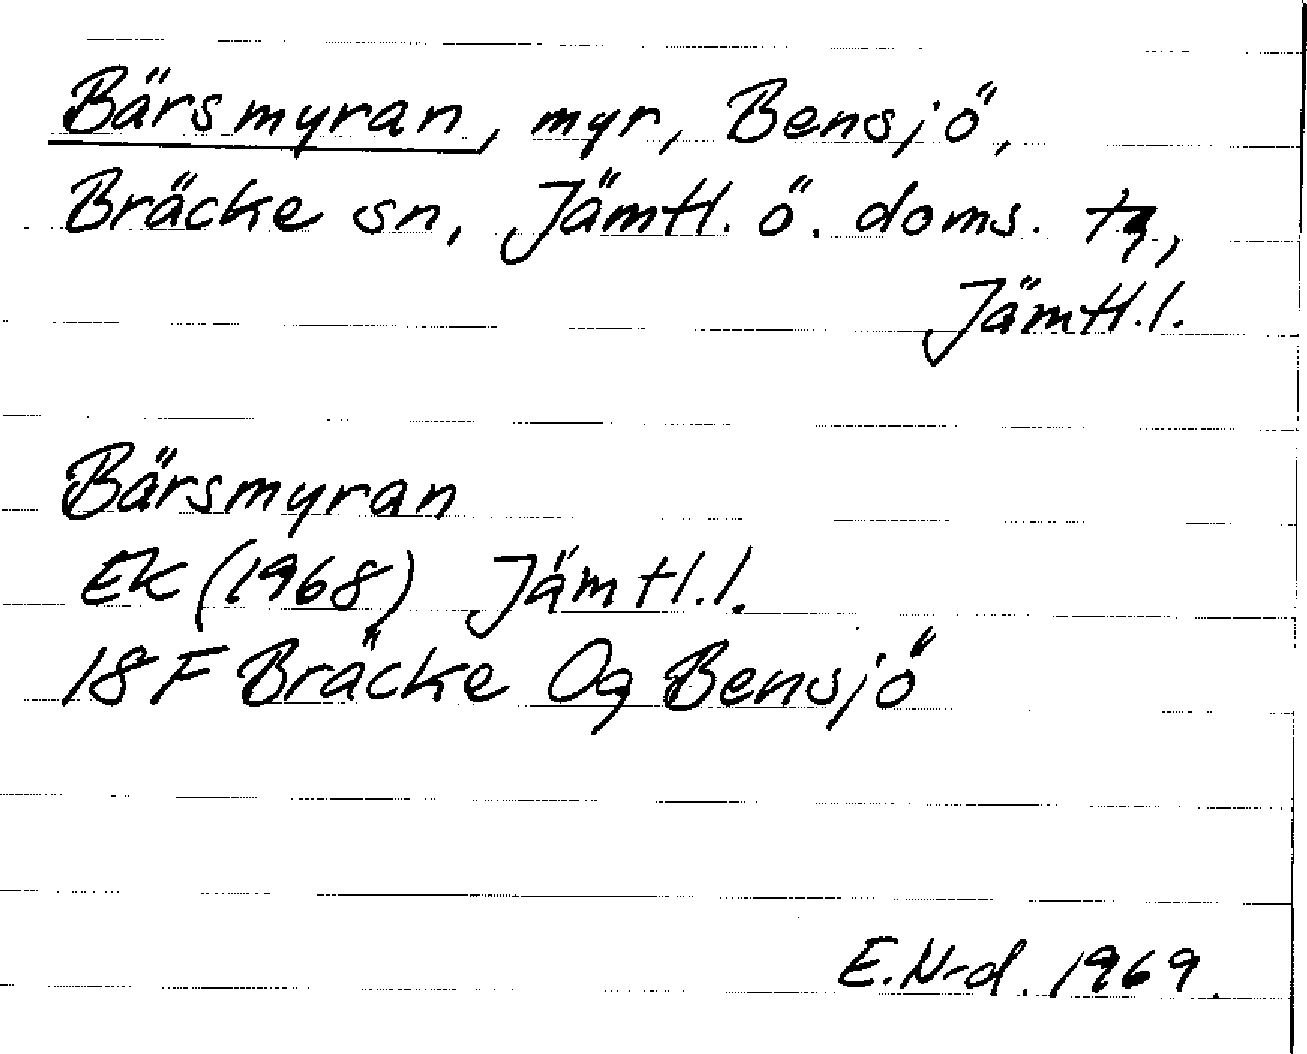 Bärsmyran, myr, Bensjö,
Bräcke sn, Jämtl. ö. doms. tg,
Jämtl.l.
Bärsmyran
EK (1968) Jämtl.l.
18 F Bräcke Og Bensjö
E.N-d. 1969.